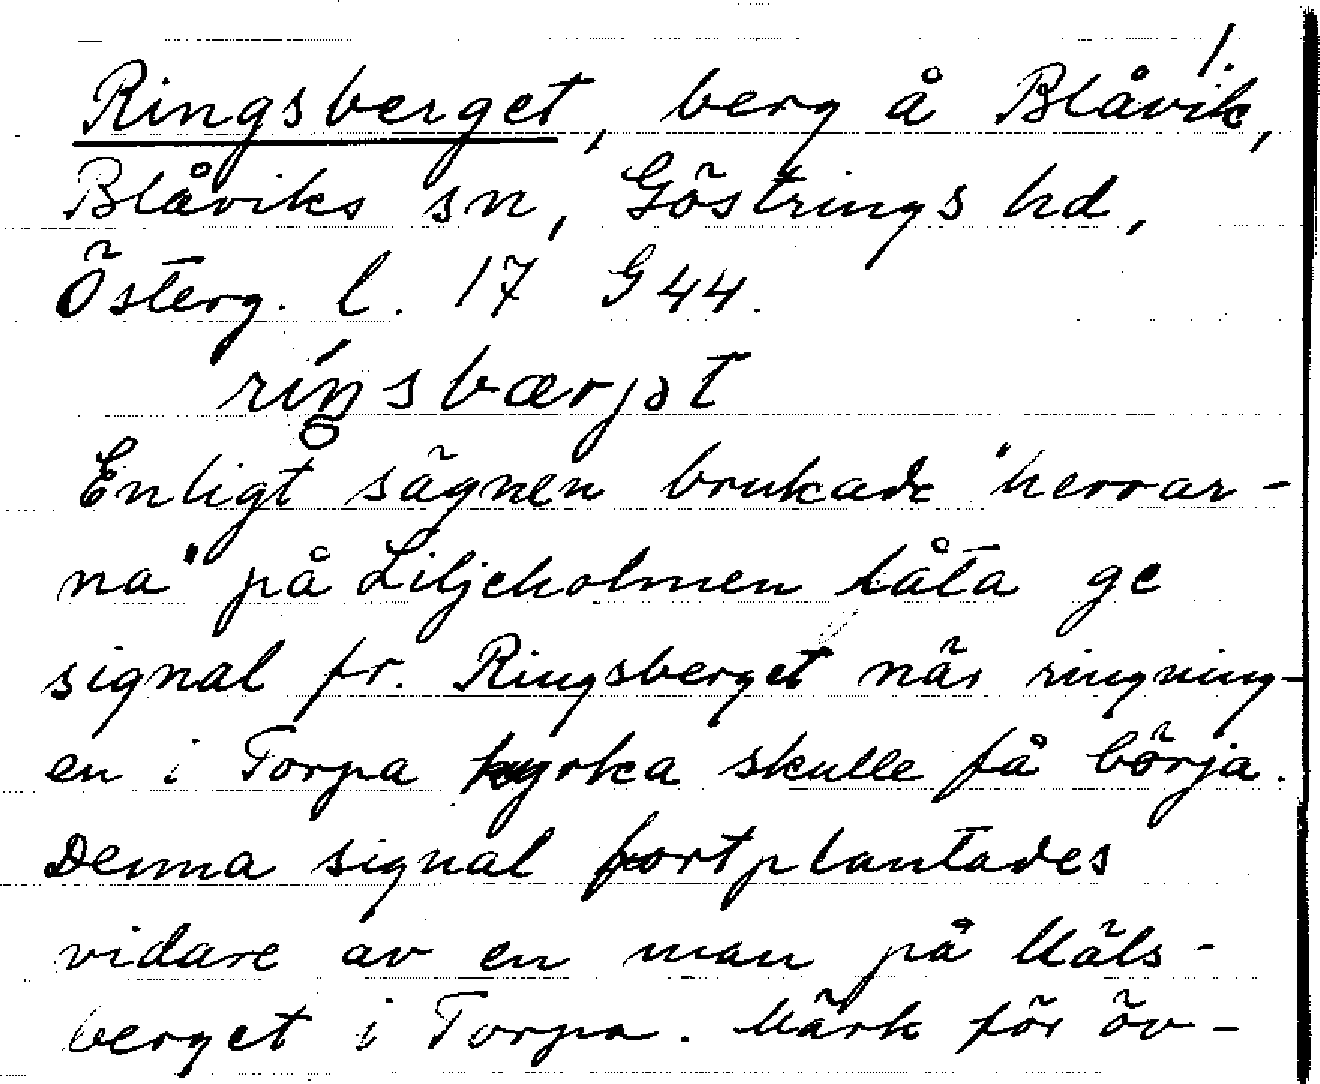 1.
Ringsberget, berg å Blåvik,
Blåviks sn, Göstrings hd,
Österg. l. 17 G 44.
ríŋ̥sbærjət
Enligt sägnen brukade "herrar-
na" på Liljeholmen låta ge
signal fr. Ringsberget när ringning-
en i Torpa kyrka skulle få börja.
Denna signal fortplantades
vidare av en man på Mäls-
berget i Torpa. Märk för öv-